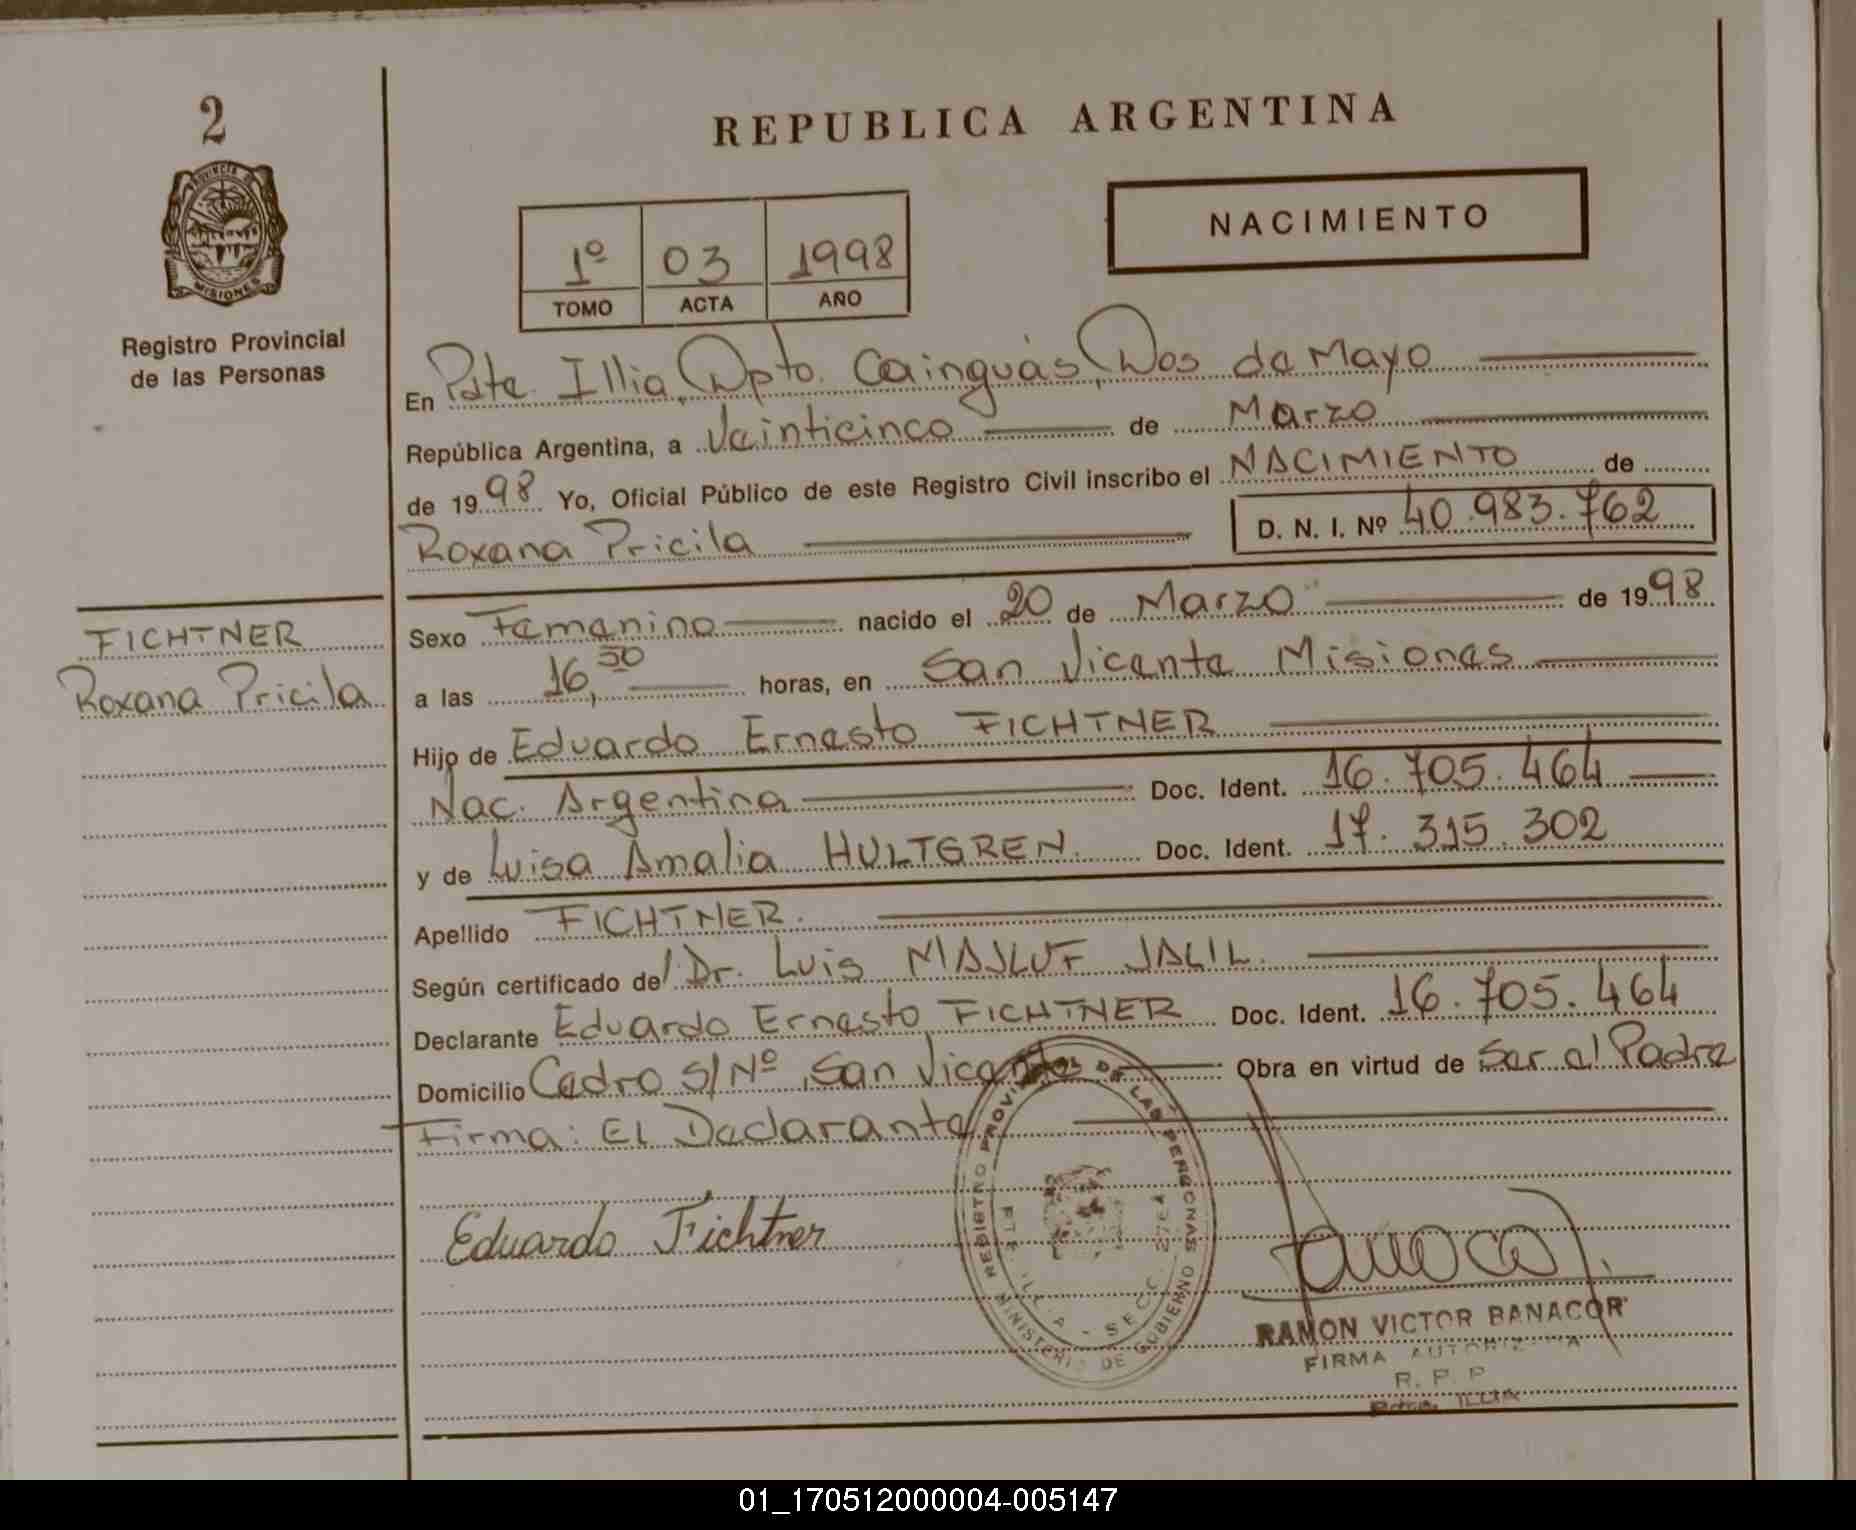 2
PROVINCIA DE
MISIONES
Registro Provincial
de las Personas
FICHTNER
Roxana Pricila
REPUBLICA ARGENTINA
NACIMIENTO
1º 03 1998
TOMO ACTA AÑO
En Pdte. Illia, Dpto. Cainguás, Dos de Mayo
República Argentina, a Veinticinco de Marzo
de 1998 Yo, Oficial Público de este Registro Civil inscribo el NACIMIENTO de
Roxana Pricila D. N. I. Nº 40.983.762
Sexo Femenino nacido el 20 de Marzo de 1998
a las 16,30 horas, en San Vicente Misiones
Hijo de Eduardo Ernesto FICHTNER
Nac. Argentina Doc. Ident. 16.705.464
y de Luisa Amalia HULTGREN. Doc. Ident. 17.315.302
Apellido FICHTNER.
Según certificado de/l Dr. Luis MASLUF JALIL.
Declarante Eduardo Ernesto FICHTNER Doc. Ident. 16.705.464
Domicilio Cedro S/Nº, San Vicente Obra en virtud de Ser el Padre
Firma: El Declarante
Eduardo Fichtner
REGISTRO PROVINCIAL DE LAS PERSONAS
MINISTERIO DE GOBIERNO
PTE. ILLIA - SECC.
RAMON VICTOR BANACOR
FIRMA AUTORIZADA
R. P. P
Pdte. ILLIA
01_170512000004-005147